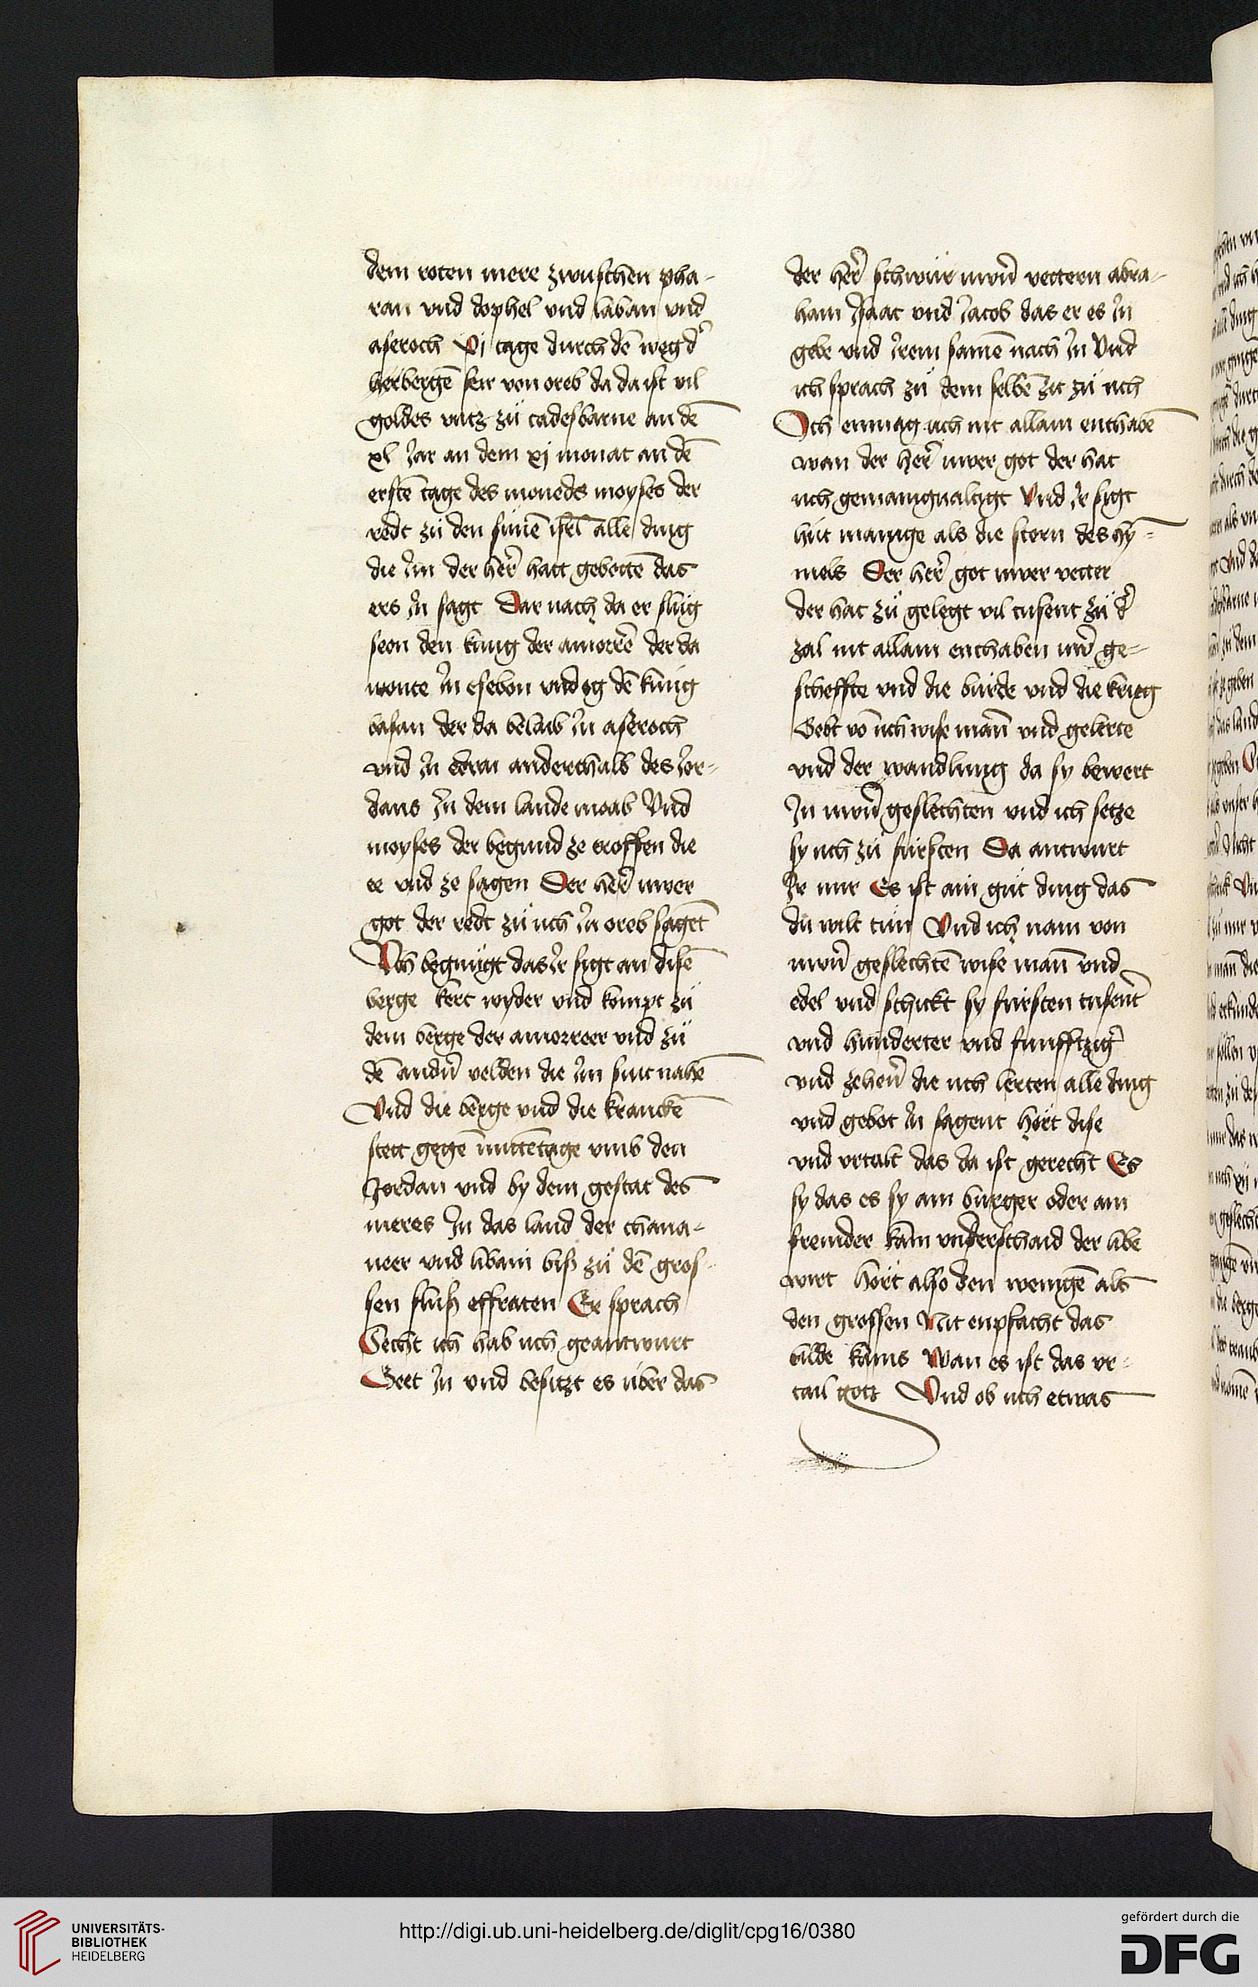 dem roten mere zwuschen pha-
ran vnd dophel vnd laban vnd
aseroch xj tage durch dē weg d̕
herbergē seir von oreb da da ist vil
goldes vntz zü cadesbarne an dē
xl Jar an dem xj monat an dē
erstē tage des moneds moyses der
redt zü den sünē isrl alle ding
die Im der her̄ hatt gebottē das
ers In sagt Dar nach da er slüg
seon den küng der amorrē der da
wonte In esebon vnd og dē künig
basan der da belaib In aseroch
vnd In edrai anderthalb des Jor-
dans In dem lande moab Vnd
moyses der begund ze eroffen die
ee vnd ze sagen Der her̄ uwer
got der redt zü uch In oreb sagēt
Uch begnügt das Ir sigt an disē
berge kert wyder vnd kompt zü
dem berge der amorreer vnd zü
dē andn̄ velden die Im sint nahē
Vnd die berge vnd die kranckē
stett gegē mittētage vmb den
Jordan vnd by dem gestat des
meres In das land der chana-
neer vnd libani biß zü dē gros-
sen fluß effraten Er sprach
Secht ich hab uch geantwurt
Geet In vnd besitzt es über das
der her̄ schwür uwrn̄ vettern abra-
ham Isaac vnd Jacob das er es In
gebe vnd Irem samē nach In Vnd
ich sprach zü dem selbē zit zü uch
Ich enmag uch nit allain enthabē
wan der her̄ uwer got der hat
uch gemanigualtigt Vnd Ir sigt
hüt manige als die stern des hy-
mels Der her̄ got uwer vetter
der hat zü gelegt vil tusent zü d̕
zal nit allain enthaben uwr̄ ge-
scheffte vnd die bürde vnd die krieg
Gebt vō uch wise man̄ vnd gelerte
vnd der wandlung da sy bewert
In uwrn̄ geslechten vnd ich setze
sy uch zü fürsten Da antwurt
Ir mir Es ist ain güt ding das
du wilt tün Vnd ich nam von
uwrn̄ geslechtē wise man̄ vnd
edel vnd schickt sy fürsten tusent̕
vnd hunderter vnd funfftzig̕
vnd zehen̄ die uch lerten alle ding
vnd gebot In sagent hört dise
vnd vrtailt das da ist gerecht Es
sy das es sy ain burger oder ain
fremder kain vnderschaid der libe
wirt hört also den wenigē als
den grossen Nit enpfacht das
bilde kains Wan es ist das vr-
tail gotz Vnd ob uch etwas
UNIVERSITÄTS-
BIBLIOTHEK
HEIDELBERG
http://digi.ub.uni-heidelberg.de/diglit/cpg16/0380
gefördert durch die
DFG